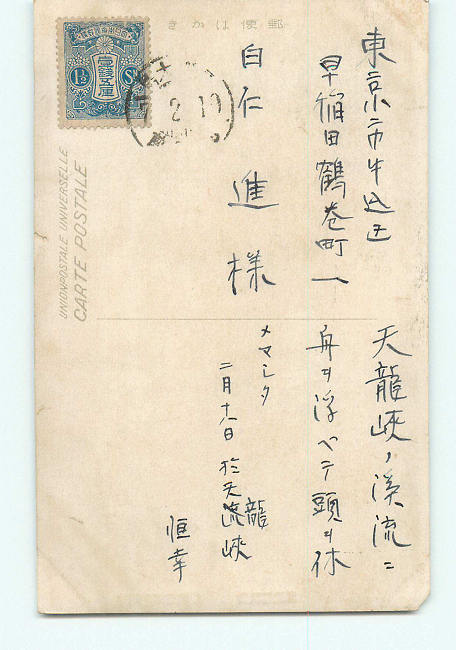 きかは便郵
東京市牛込区
早稲田鶴巻町一
白仁 進 様
天龍峡ノ渓流ニ
舟ヲ浮ベテ頭ヲ休
メマシタ
二月十八日 於天流峡
龍
恒幸
UNION POSTALE UNIVERSELLE
CARTE POSTALE
1½ Sn
壹錢五厘
2 19